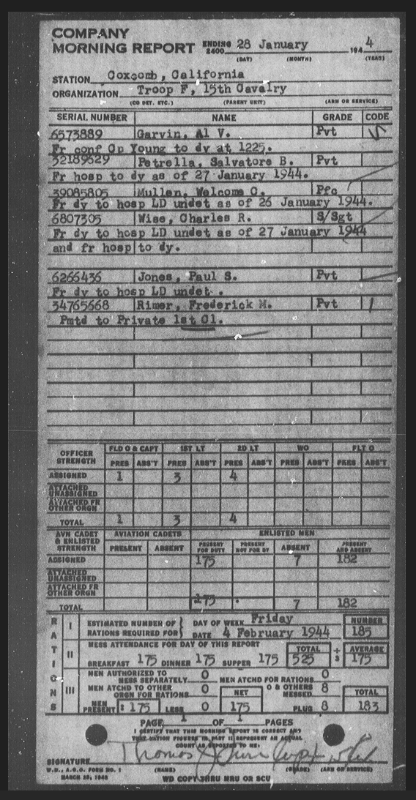 COMPANY
MORNING REPORT ENDING 2400 28 January 194 4
(DAY) (MONTH) (YEAR)
STATION Coxcomb, California
ORGANIZATION Troop F, 15th Cavalry
(CO DET, ETC.) (PARENT UNIT) (ARM OR SERVICE)
SERIAL NUMBER NAME GRADE CODE
6573889 Garvin, Al V. Pvt
Fr conf Cp Young to dy at 1225.
32189529 Petrella, Salvatore B. Pvt
Fr hosp to dy as of 27 January 1944.
39085805 Mullen, Welcome C. Pfc
Fr dy to hosp LD undet as of 26 January 1944.
6807305 Wise, Charles R. S/Sgt
Fr dy to hosp LD undet as of 27 January 1944
and fr hosp to dy.
6266436 Jones, Paul S. Pvt
Fr dy to hosp LD undet .
34765668 Rimer, Frederick M. Pvt
Pmtd to Private 1st Cl.
OFFICER STRENGTH FLD O & CAPT 1ST LT 2D LT WO FLT O
PRES ABS'T PRES ABS'T PRES ABS'T PRES ABS'T PRES ABS'T
ASSIGNED 1 3 4
ATTACHED UNASSIGNED
ATTACHED FR OTHER ORGN
TOTAL 1 3 4
AVN CADET & ENLISTED STRENGTH AVIATION CADETS ENLISTED MEN
PRESENT ABSENT PRESENT FOR DUTY PRESENT NOT FOR DY ABSENT PRESENT AND ABSENT
ASSIGNED 175 7 182
ATTACHED UNASSIGNED
ATTACHED FR OTHER ORGN
TOTAL 175 7 182
RATIONS
I ESTIMATED NUMBER OF RATIONS REQUIRED FOR DAY OF WEEK Friday NUMBER
DATE 4 February 1944 185
II MESS ATTENDANCE FOR DAY OF THIS REPORT TOTAL ÷ 3 AVERAGE
BREAKFAST 175 DINNER 175 SUPPER 175 525 175
III MEN AUTHORIZED TO MESS SEPARATELY 0 MEN ATCHD FOR RATIONS 0
MEN ATCHD TO OTHER ORGN FOR RATIONS 0 NET O & OTHERS MESSED 8 TOTAL
MEN PRESENT 175 LESS 0 175 PLUS 8 183
PAGE 1 OF 1 PAGES
I CERTIFY THAT THIS MORNING REPORT IS CORRECT
SIGNATURE Thomas
(NAME) (GRADE) (ARM OR SERVICE)
W.D., A.G.O. FORM NO. 1
WD COPY THRU MRU OR SCU